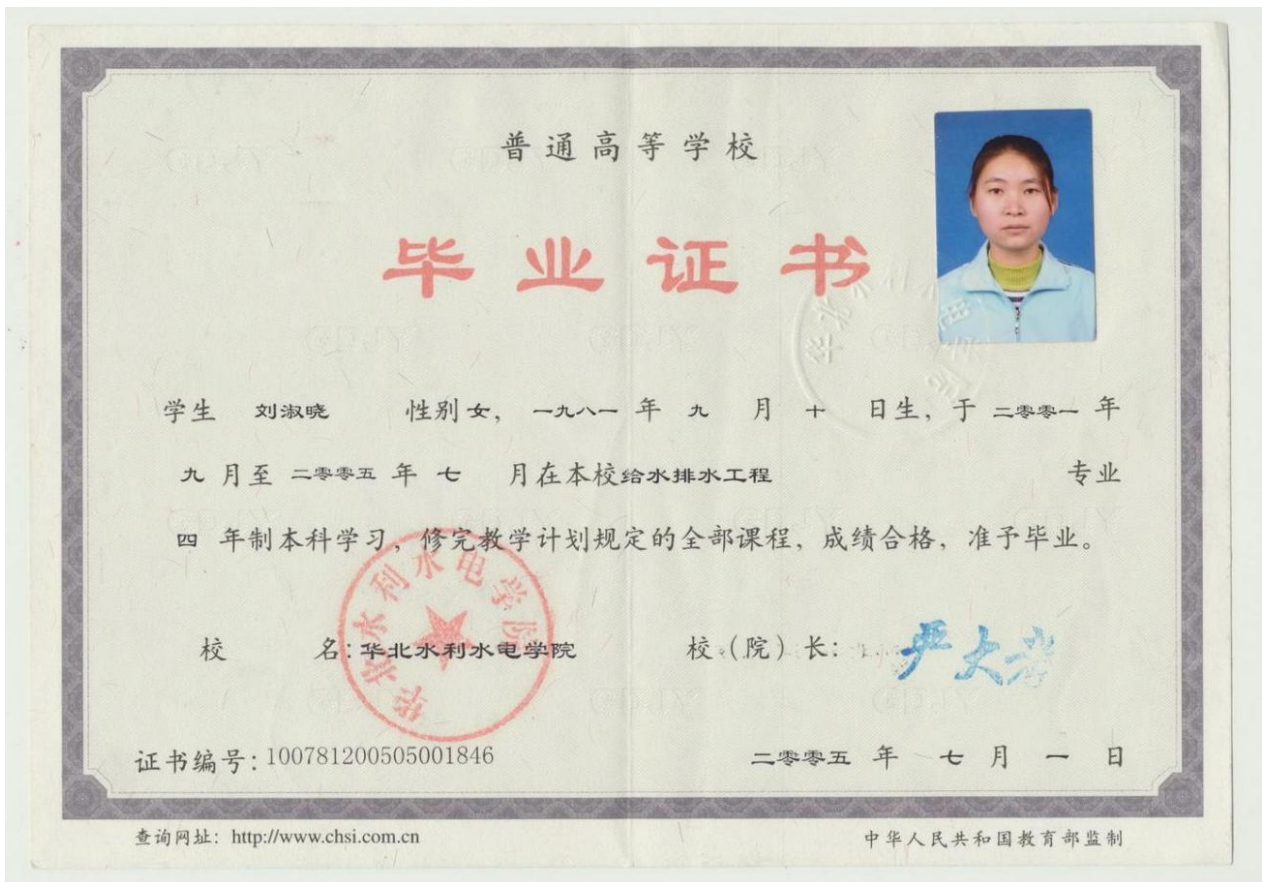 普通高等学校
毕业证书
学生 刘淑晓 性别 女, 一九八一 年 九 月 十 日生, 于 二零零一 年
九 月至 二零零五 年 七 月在本校给水排水工程 专业
四 年制本科学习, 修完教学计划规定的全部课程, 成绩合格, 准予毕业。
华北水利水电学院
校 名: 华北水利水电学院 校(院)长: 严大考
证书编号: 100781200505001846 二零零五 年 七 月 一 日
查询网址: http://www.chsi.com.cn 中华人民共和国教育部监制